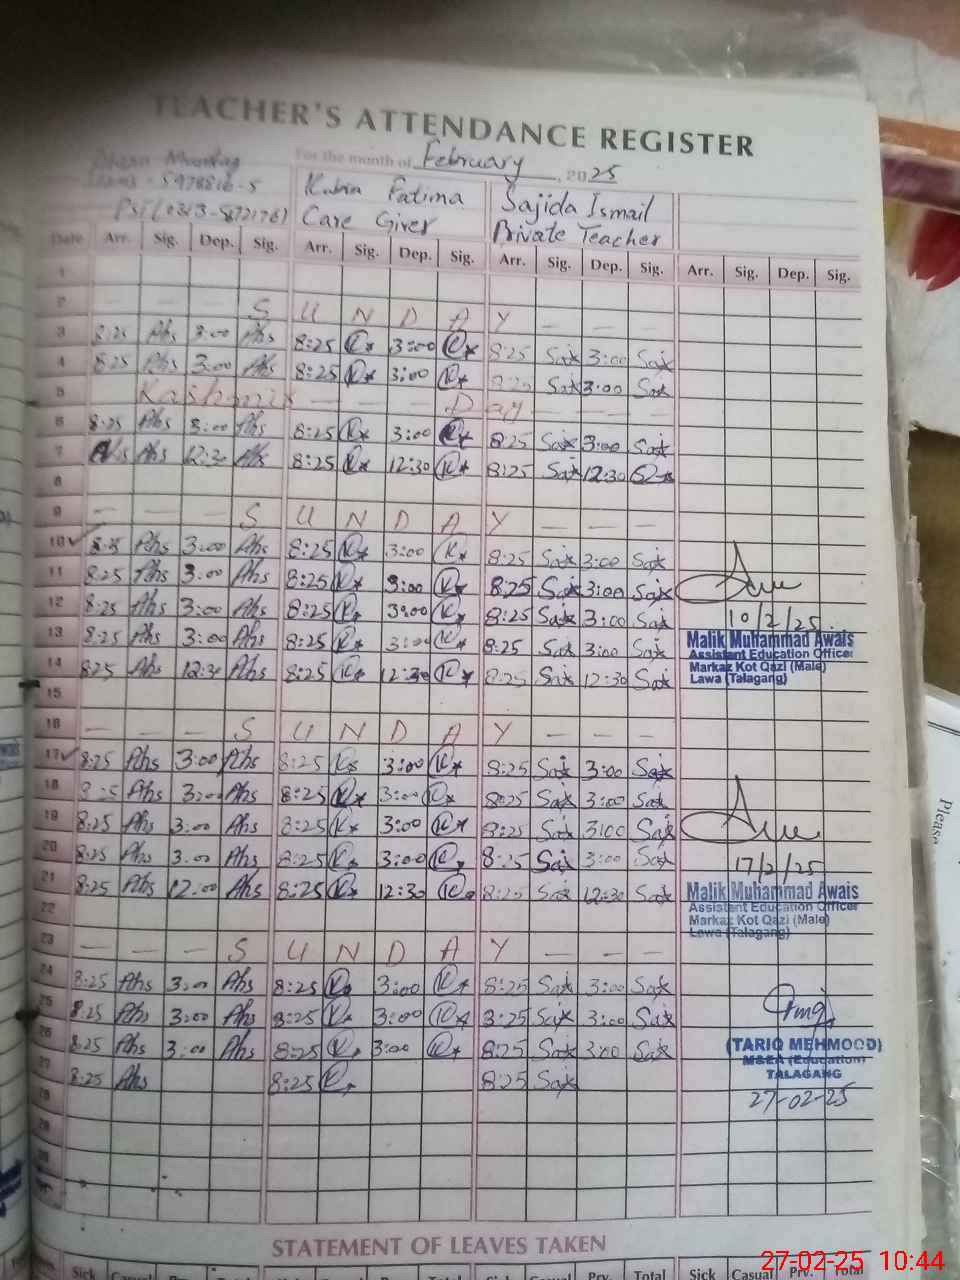 TEACHER'S ATTENDANCE REGISTER
For the month of February, 2025
Kubra Fatima Sajida Ismail
PST (0313-5872176) Care Giver Private Teacher
Date Arr. Sig. Dep. Sig. Arr. Sig. Dep. Sig. Arr. Sig. Dep. Sig. Arr. Sig. Dep. Sig.
1
2 — — — S U N D A Y — — —
3 8:25 Ahs 3:00 Ahs 8:25 K 3:00 K 8:25 Saj 3:00 Saj
4 8:25 Ahs 3:00 Ahs 8:25 K 3:00 K 8:25 Saj 3:00 Saj
5 Kashmir — — — Day — — —
6 8:25 Ahs 3:00 Ahs 8:25 K 3:00 K 8:25 Saj 3:00 Saj
7 Ahs 12:30 Ahs 8:25 K 12:30 K 8:25 Saj 12:30
8
9 — — — S U N D A Y — — —
10 ✓ 8:25 Ahs 3:00 Ahs 8:25 K 3:00 K 8:25 Saj 3:00 Saj
11 8:25 Ahs 3:00 Ahs 8:25 K 3:00 K 8:25 Saj 3:00 Saj
12 8:25 Ahs 3:00 Ahs 8:25 K 3:00 K 8:25 Saj 3:00 Saj 10/2/25
13 8:25 Ahs 3:00 Ahs 8:25 K 3:00 K 8:25 Saj 3:00 Saj
Malik Muhammad Awais
Assistant Education Officer
Markaz Kot Qazi (Male)
Lawa (Talagang)
14 8:25 Ahs 12:30 Ahs 8:25 K 12:30 K 8:25 Saj 12:30 Saj
15
16 — — — S U N D A Y — — —
17 ✓ 8:25 Ahs 3:00 Ahs 8:25 K 3:00 K 8:25 Saj 3:00 Saj
18 8:25 Ahs 3:00 Ahs 8:25 K 3:00 K 8:25 Saj 3:00 Saj
19 8:25 Ahs 3:00 Ahs 8:25 K 3:00 K 8:25 Saj 3:00 Saj
20 8:25 Ahs 3:00 Ahs 8:25 K 3:00 K 8:25 Saj 3:00 Saj 17/2/25
21 8:25 Ahs 12:00 Ahs 8:25 K 12:30 K 8:25 Saj 12:30 Saj
Malik Muhammad Awais
Assistant Education Officer
Markaz Kot Qazi (Male)
Lawa (Talagang)
22
23 — — — S U N D A Y — — —
24 8:25 Ahs 3:00 Ahs 8:25 K 3:00 K 8:25 Saj 3:00 Saj
25 8:25 Ahs 3:00 Ahs 8:25 K 3:00 K 8:25 Saj 3:00 Saj
26 8:25 Ahs 3:00 Ahs 8:25 K 3:00 K 8:25 Saj 3:00 Saj
(TARIQ MEHMOOD)
M&EA (Education)
TALAGANG
27-02-25
8:25 Ahs 8:25 K 8:25 Saj
STATEMENT OF LEAVES TAKEN
Sick Casual Prv. Total Sick Casual Prv. Total
Please
27-02-25 10:44